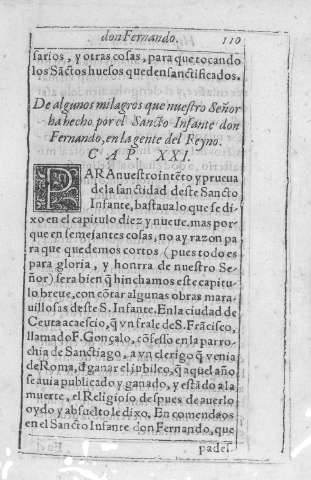 don Fernando. 110
sarios, y otras cosas, para que tocando
los Sãctos huesos queden sanctificados.
De algunos milagros que nuestro Señor
ha hecho por el Sancto Infante don
Fernando, en la gente del Reyno.
CAP. XXI.
PARA nuestro intẽto y prueua
de la sanctidad deste Sancto
Infante, bastaua lo que se di-
xo en el capitulo diez y nueue. mas por
que en semejantes cosas, no ay razon pa
ra que quedemos cortos (pues todo es
para gloria, y honrra de nuestro Se-
ñor) sera bien q̃ hinchamos este capitu-
lo breue, con cõtar algunas obras mara-
uillosas deste S. Infante. En la ciudad de
Ceuta acaescio, q̃ vn frale de S. Frãcisco,
llamado F. Gonçalo, cõfesso en la parro-
chia de Sanctiago, a vn clerigo q̃ venia
de Roma, d̃ ganar el iubileo, q̃ aquel año
se auia publicado y ganado, y estãdo a la
muerte, el Religioso despues de auerlo
oydo y absuelto le dixo. En comendaos
en el Sancto Infante don Fernando, que
pades